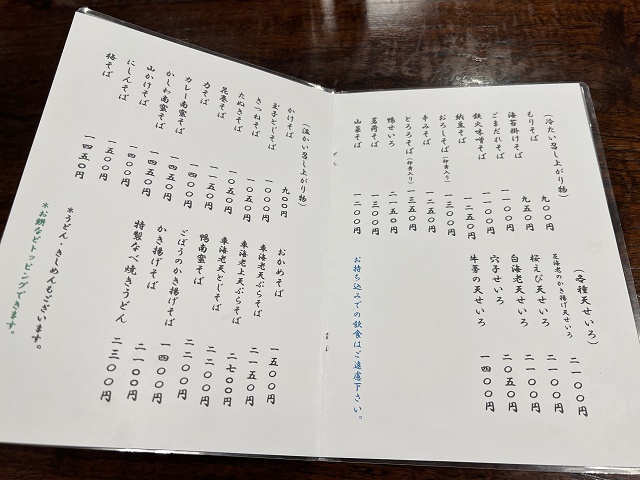 （冷たい召し上がり物）
もりそば　九〇〇円
海苔掛けそば　九五〇円
ごまだれそば　一一〇〇円
鉄火味噌そば　一一〇〇円
納豆そば　一二五〇円
おろしそば（卵黄入り）　一三〇〇円
辛みそば　一二五〇円
とろろそば（卵黄入り）　一三五〇円
鴨せいろ　二一五〇円
茗荷そば　一三〇〇円
山菜そば　一二〇〇円
（各種天せいろ）
芝海老のかき揚げ天せいろ　二一〇〇円
桜えび天せいろ　二一〇〇円
白海老天せいろ　二一〇〇円
穴子せいろ　二〇五〇円
牛蒡の天せいろ　一四〇〇円
お持ち込みでの飲食はご遠慮下さい。
（温かい召し上がり物）
かけそば　九〇〇円
玉子とじそば　一〇〇〇円
きつねそば　一〇五〇円
たぬきそば　一〇五〇円
花巻そば　一一五〇円
力そば
カレー南蛮そば　一四五〇円
かしわ南蛮そば　一四五〇円
山かけそば　一四〇〇円
にしんそば　一五〇〇円
梅そば　一四五〇円
おかめそば　一五〇〇円
車海老天ぷらそば　二一五〇円
車海老上天ぷらそば　二七〇〇円
車海老天とじそば　二二〇〇円
鴨南蛮そば　二二〇〇円
ごぼうのかき揚げそば　一四〇〇円
かき揚げそば　二一〇〇円
特製なべ焼きうどん　二三〇〇円
＊うどん・きしめんもございます。
＊お餅などトッピングできます。